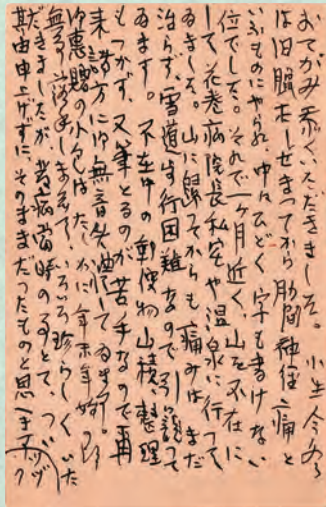 おてがみ忝くいただきました。小生今冬
は旧臘おしせまつてから肋間神経痛と
いふものにやられ、中々ひどく字も書けない
位でした。それで一ヶ月近く山を不在に
して花巻病院長私宅や温泉に行つて
ゐました。山に帰つてからも痛みはまだ
治らず、雪道歩行困難なので引籠つて
ゐます。不在中の郵便物山積整理
もつかず、又筆とるのが苦手なので
諸方に御無音失礼してゐます。
御恵贈の小包はたしかに年末年始の頃
無事落手しまして、いろいろ珍らしくいた
だきましたが、発病当時の事とて、つい
其由申上げずに、そのままだつたものと思へます
ツヅク